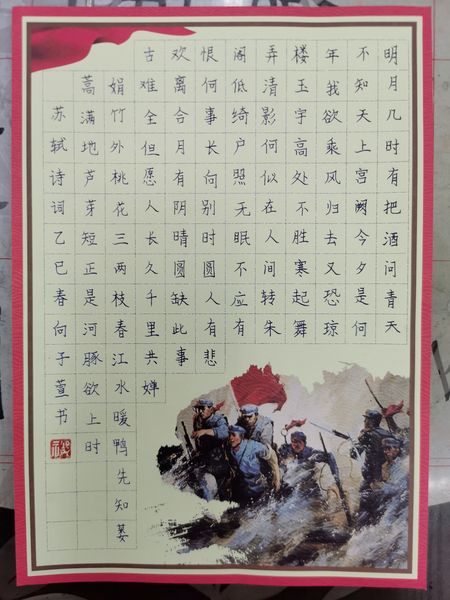 明月几时有把酒问青天
不知天上宫阙今夕是何
年我欲乘风归去又恐琼
楼玉宇高处不胜寒起舞
弄清影何似在人间转朱
阁低绮户照无眠不应有
恨何事长向别时圆人有悲
欢离合月有阴晴圆缺此事
古难全但愿人长久千里共婵
娟竹外桃花三两枝春江水暖鸭先知蒌
蒿满地芦芽短正是河豚欲上时
苏轼诗词乙巳春向子萱书